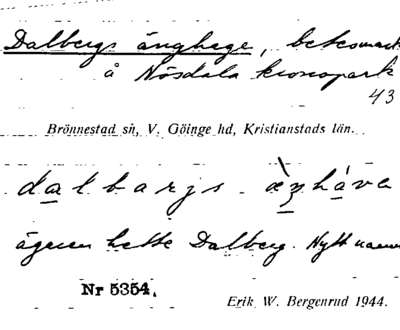 Dalbergs änghage, betesmark
å Nösdala kronopark
43
Brönnestad sn, V. Göinge hd, Kristianstads län.
dalbarjs
ägaren hette Dalberg. Nytt namn
Nr 5354.
Erik W. Bergenrud 1944.